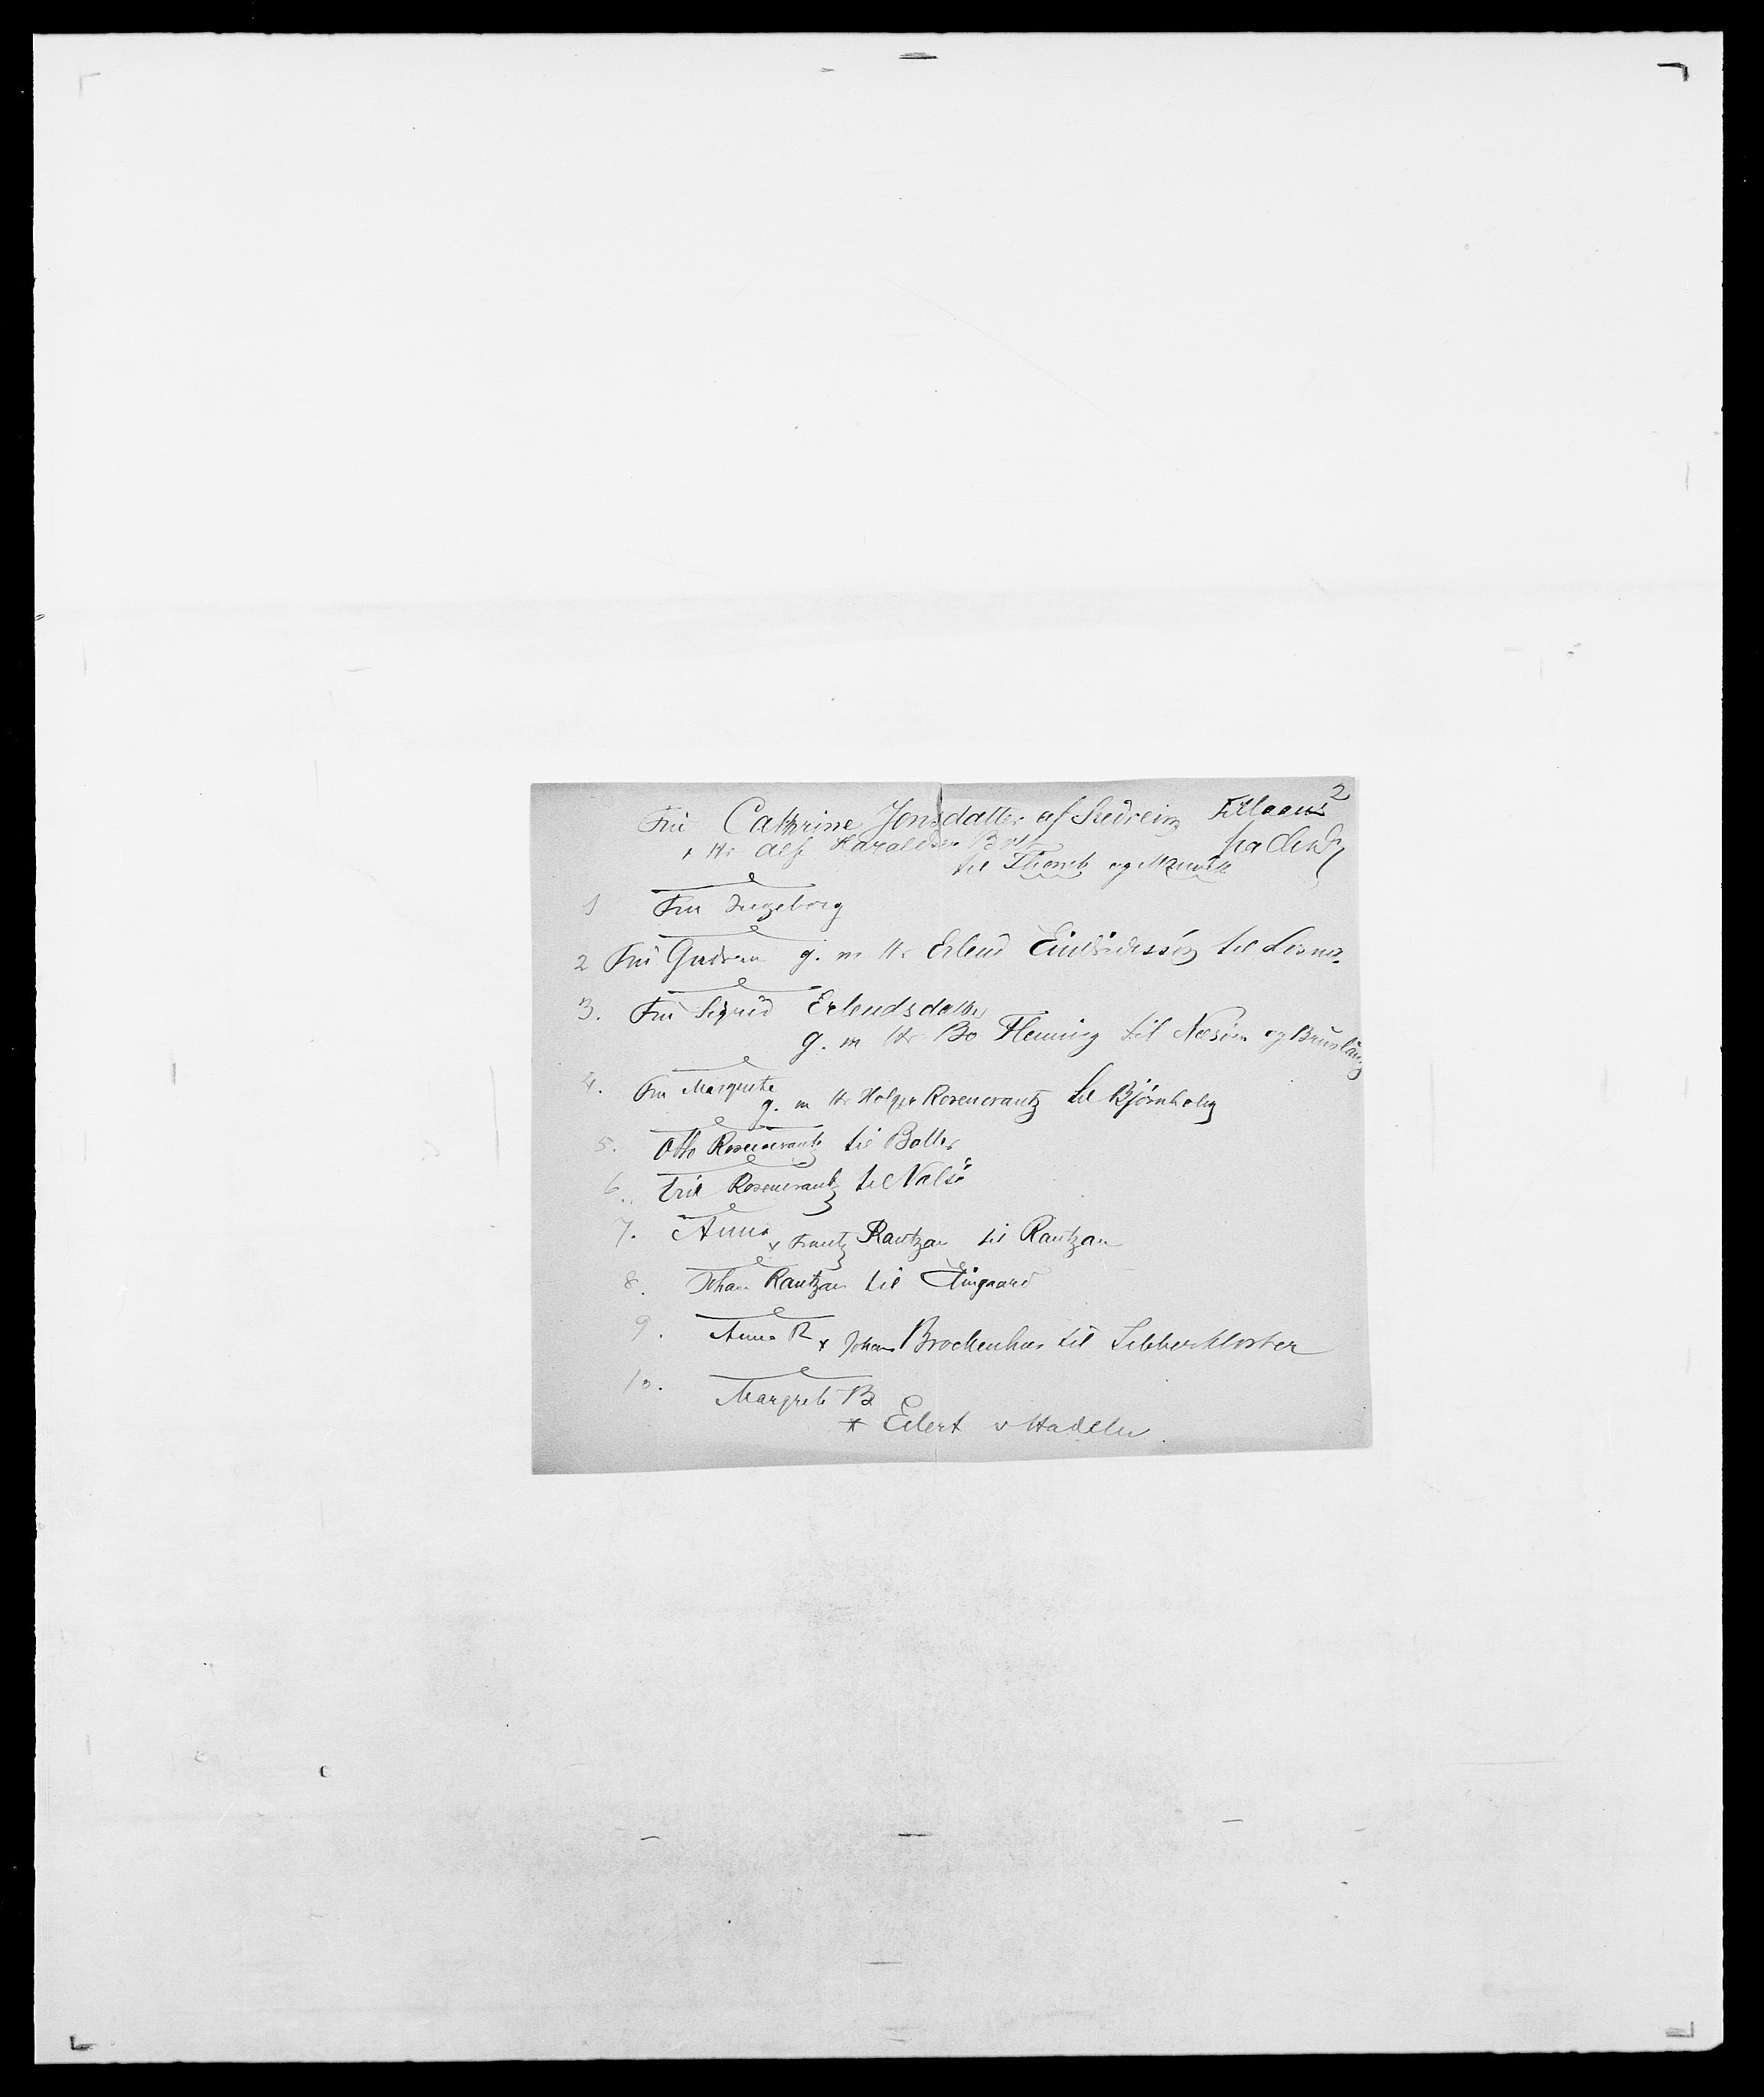 2
Fru Cathrine Jonsdatter af Sudreim
x Hr Alf Haraldsen Bolt
til Thorsch og
1 Fru Ingeborg
2 Fru Gudrun g. m Hr Erlend Eindridessön til Losna.
3. Fru Sigrid Erlendsdatter
g. m Hr Bo Fleming til Næsön og
4. Fru Margrete
g. m Hr Holger Rosencrantz til Björnholm
5. Otto Rosencrantz til Boller
6. Erik Rosencrantz til Valsö
7. Anna
x Frantz Rantzau til Rantzau
8. Johan Rantzau til
9. Anna R x Johan Brockenhus til Sebberkloster
10. Margrete B
x Eilert v Hadeln.